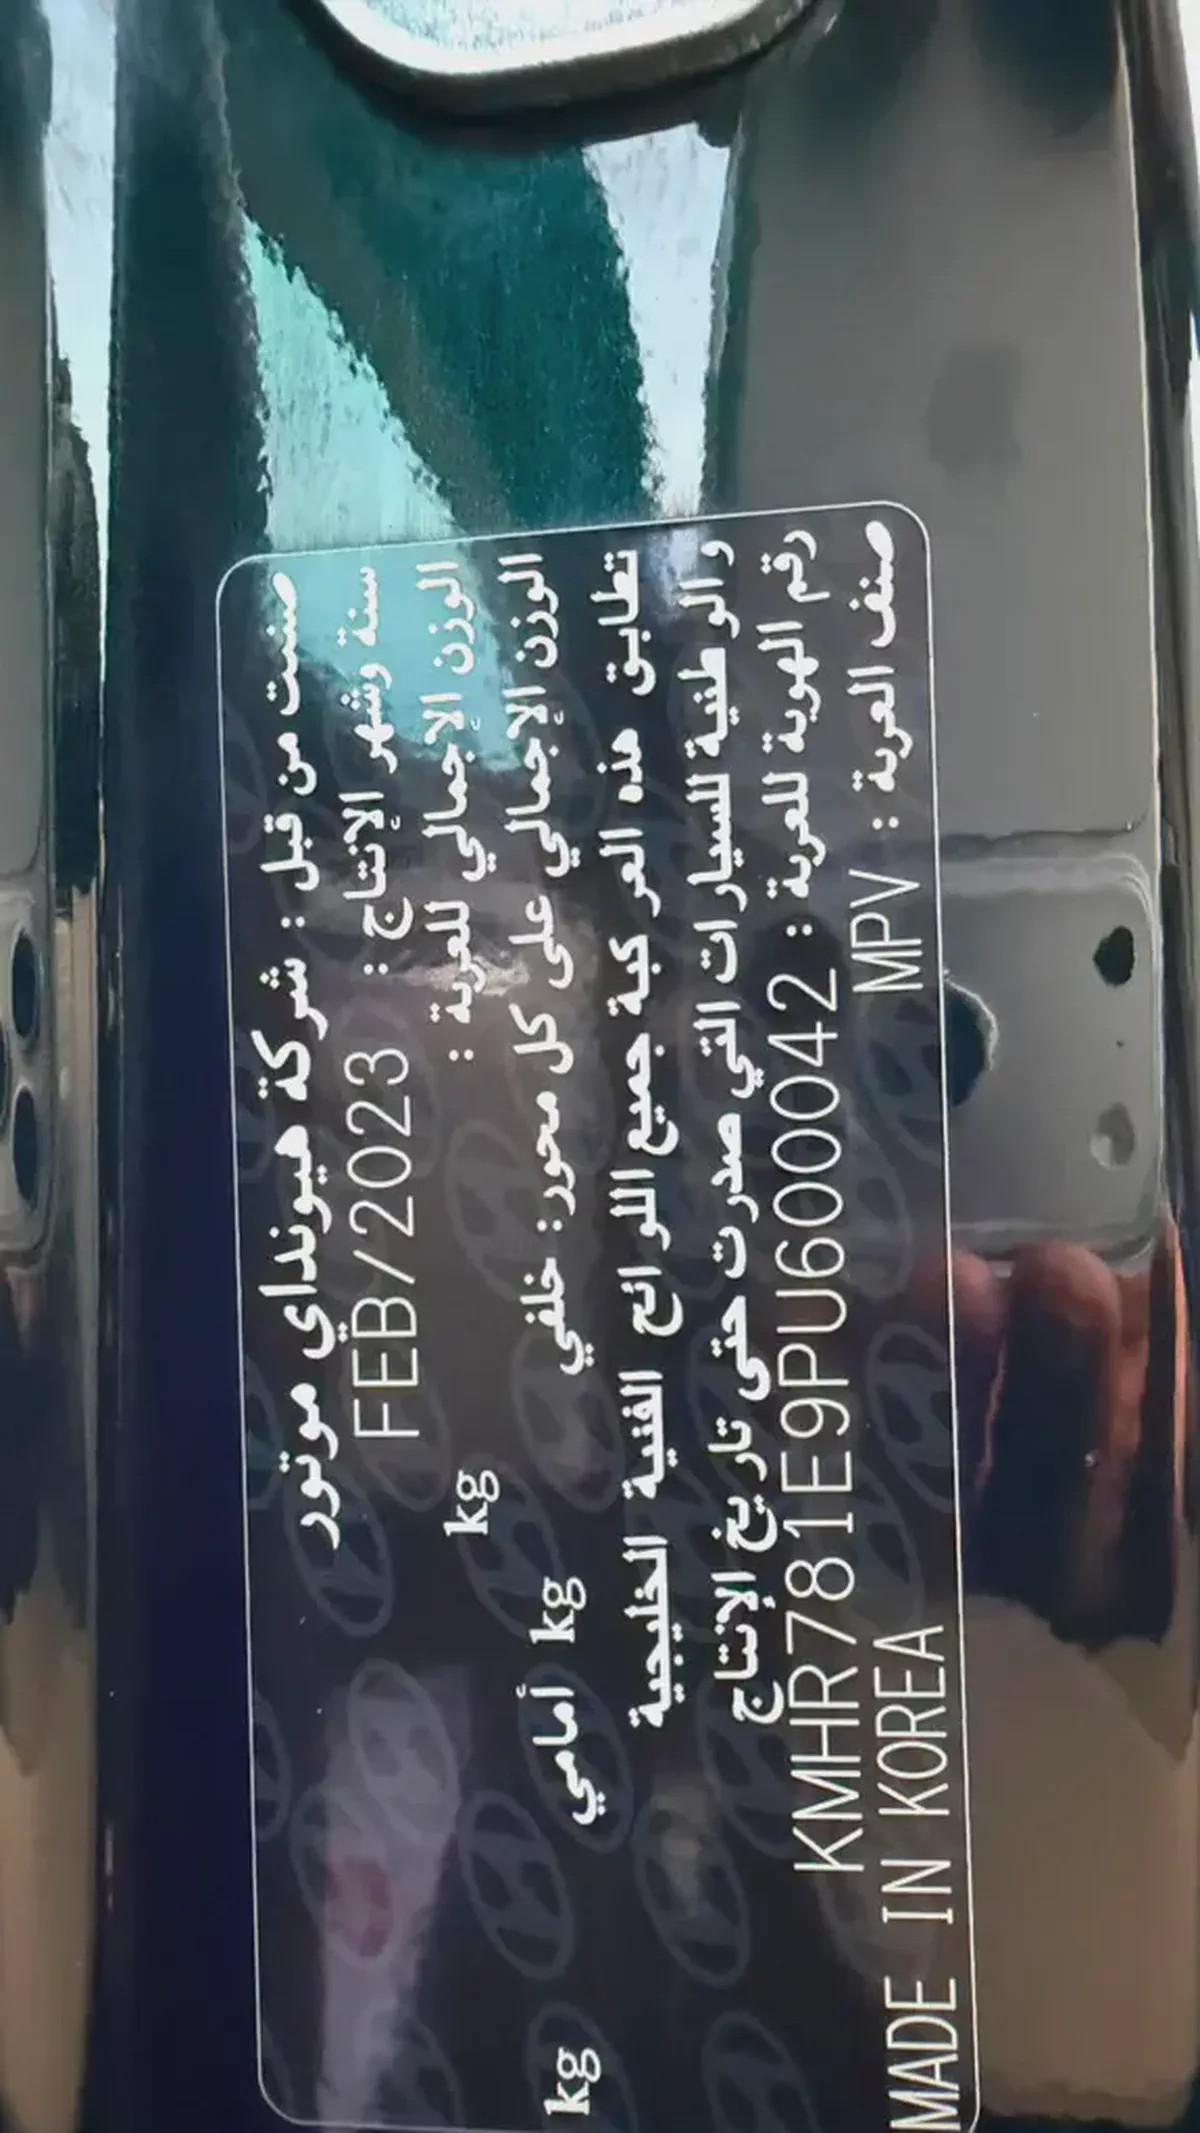 صنعت من قبل : شركة هيونداي موتور
سنة وشهر الإنتاج : FEB/2023
الوزن الإجمالي للعربة : kg
الوزن الإجمالي على كل محور : خلفي kg أمامي kg
تطابق هذه العر كبة جميع اللوائح الفنية الخليجية
والوطنية للسيارات التي صدرت حتى تاريخ الإنتاج
رقم الهوية للعربة : KMHR781E9PU600042
صنف العربة : MPV MADE IN KOREA